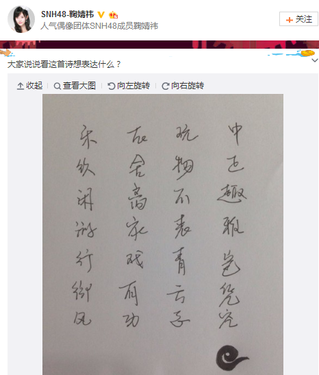 SNH48-鞠婧祎
人气偶像团体SNH48成员鞠婧祎
+ 关注
大家说说看这首诗想表达什么？
收起 查看大图 向左旋转 向右旋转
宋闲游行御风
舍家戏有功
玩物不表青云子
中正趣雅岂凭究